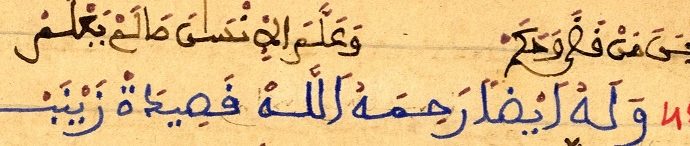 مَنْ قَضَى وَحَكَمْ وَعَلَّمَ الاِنْسَانَ مَا لَمْ يَعْلَمْ
وَلَهُ اَيْضًا رَحِمَهُ اللَّهْ قَصِيدَةُ زَيْنَبْ